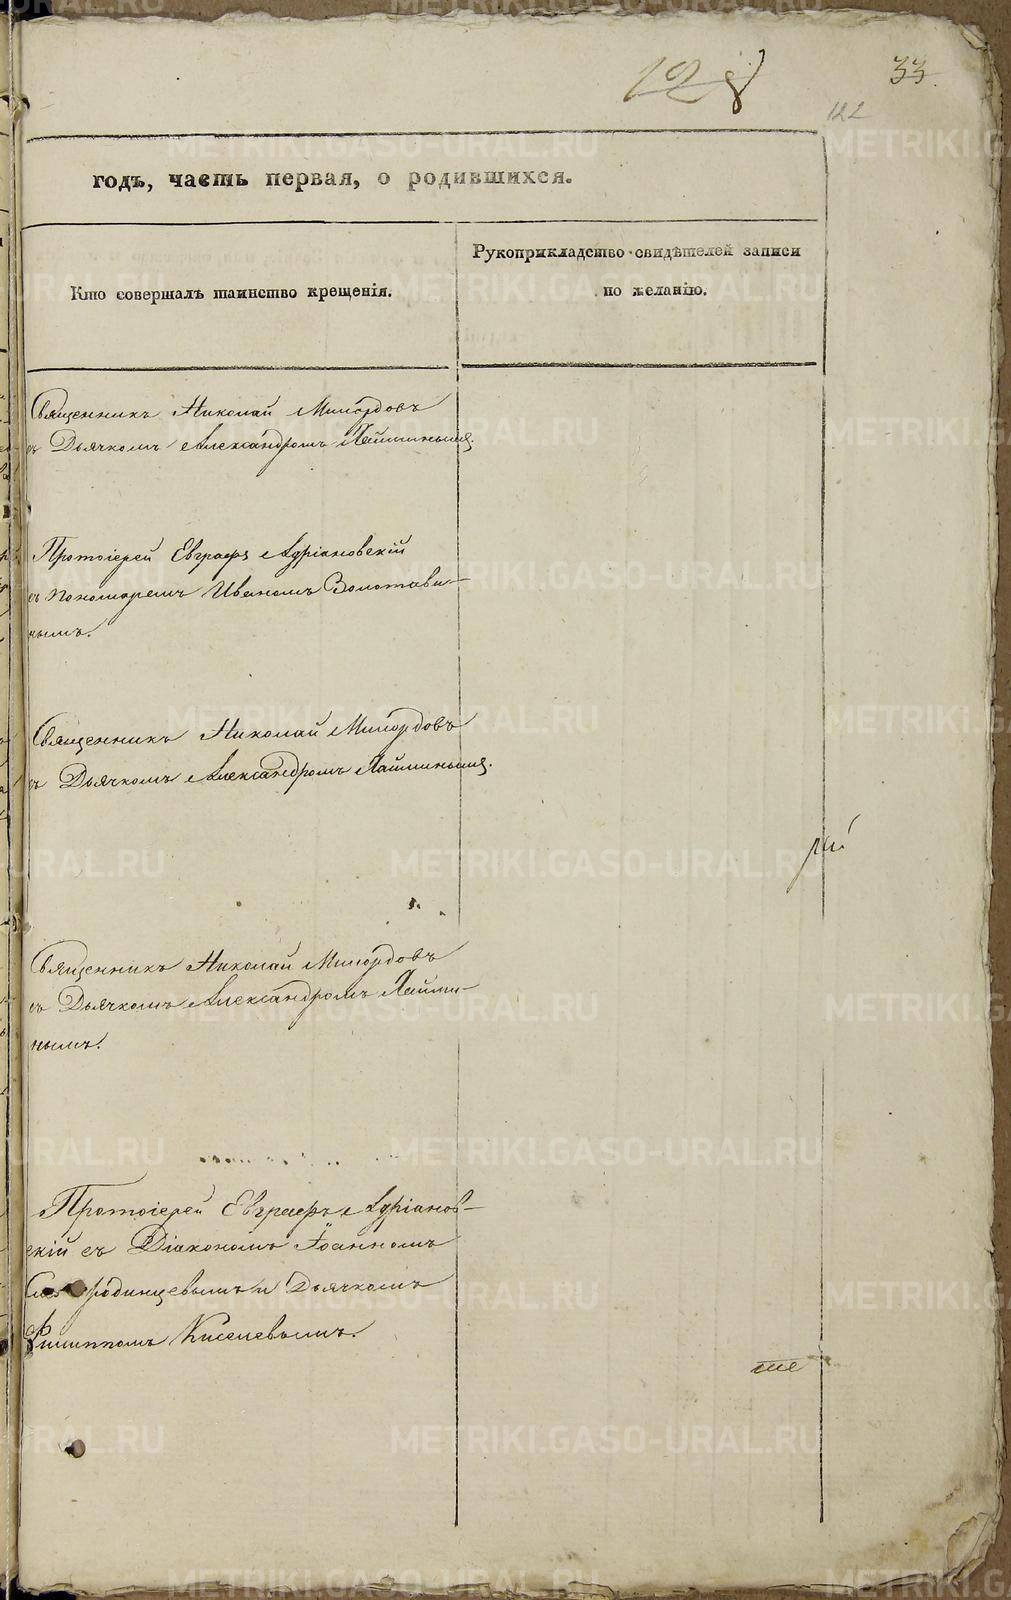 128
33.
122
годъ, часть первая, о родившихся.
Кто совершалъ таинство крещенія.
Рукоприкладство свидѣтелей записи
по желанію.
Священникъ Николай Милордовъ
съ Дьячкомъ Александромъ
Протоіерей Евграфъ Адріановскій
съ Пономаремъ Иваномъ Золотави-
нымъ.
Священникъ Николай Милордовъ
съ Дьячкомъ Александромъ
Священникъ Николай Милордовъ
съ Дьячкомъ Александромъ
нымъ.
Протоіерей Евграфъ Адріанов-
скій съ Діакономъ Іоанномъ
и Дьячкомъ
Филиппомъ Киселевымъ.
METRIKI.GASO-URAL.RU